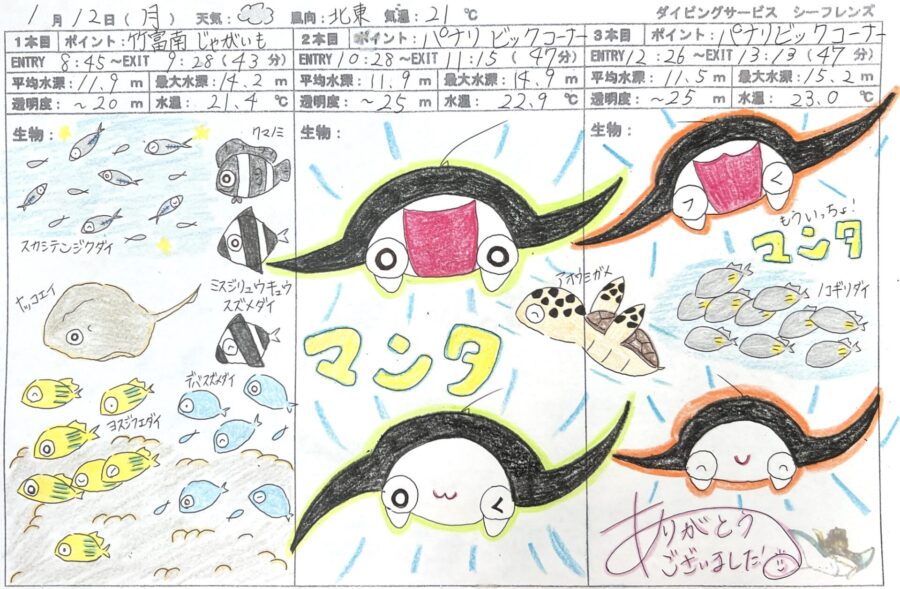 1月12日(月) 天気: 風向: 北東 気温: 21℃ ダイビングサービス シーフレンズ
1本目 ポイント: 竹富南 じゃがいも
ENTRY 8:45~EXIT 9:28(43分)
平均水深: 11.9m 最大水深: 14.2m
透明度: ~20m 水温: 21.4℃
生物:
クマノミ
スカシテンジクダイ
ミスジリュウキュウ
スズメダイ
ヤッコエイ
デバスズメダイ
ヨスジフエダイ
2本目 ポイント: パナリ ビックコーナー
ENTRY 10:28~EXIT 11:15(47分)
平均水深: 11.9m 最大水深: 14.9m
透明度: ~25m 水温: 22.9℃
生物:
マンタ
アオウミガメ
3本目 ポイント: パナリビックコーナー
ENTRY 12:26~EXIT 13:13(47分)
平均水深: 11.5m 最大水深: 15.2m
透明度: ~25m 水温: 23.0℃
生物:
もういっちょ!
マンタ
ノコギリダイ
ありがとう
ございました